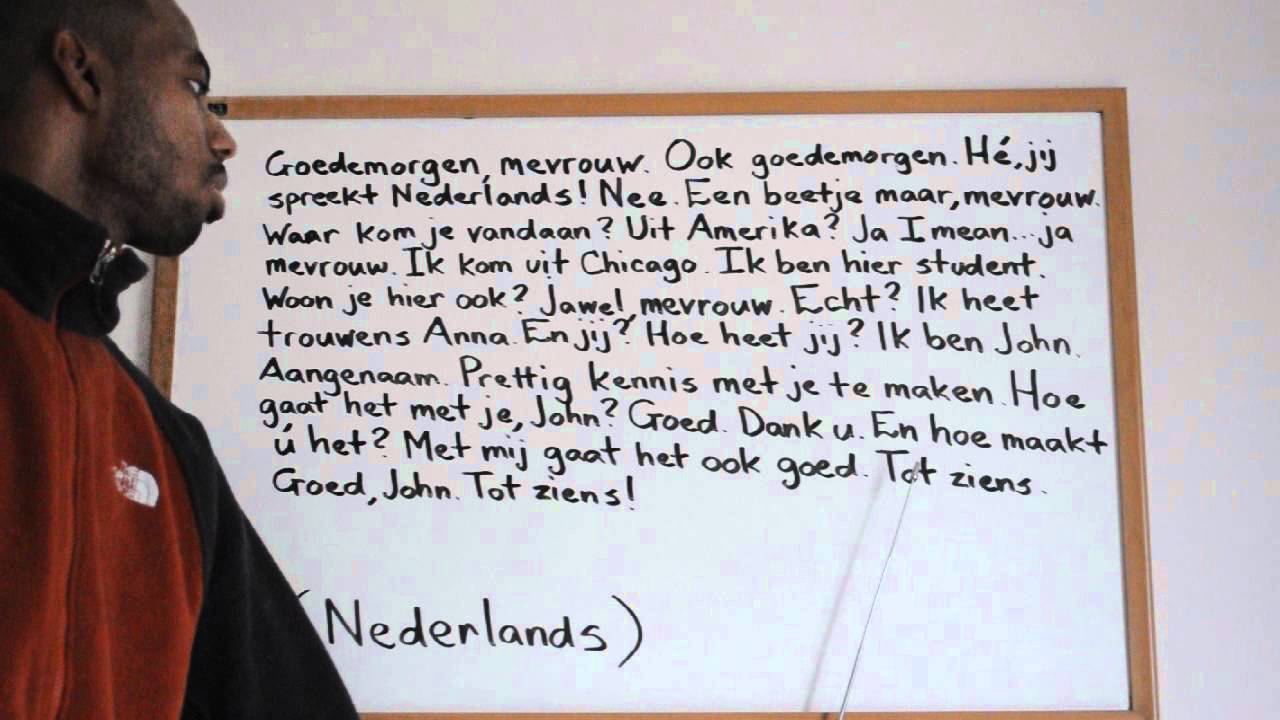 Goedemorgen, mevrouw. Ook goedemorgen. Hé, jij
spreekt Nederlands! Nee. Een beetje maar, mevrouw.
Waar kom je vandaan? Uit Amerika? Ja I mean... ja
mevrouw. Ik kom uit Chicago. Ik ben hier student.
Woon je hier ook? Jawel, mevrouw. Echt? Ik heet
trouwens Anna. En jij? Hoe heet jij? Ik ben John.
Aangenaam. Prettig kennis met je te maken. Hoe
gaat het met je, John? Goed. Dank u. En hoe maakt
ú het? Met mij gaat het ook goed. Tot ziens.
Goed, John. Tot ziens!
(Nederlands)
THE NORTH FACE